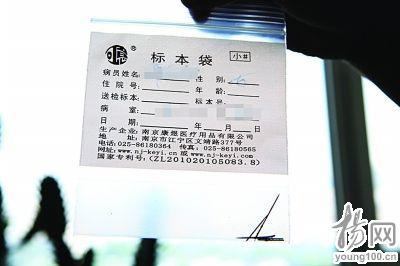 标本袋 小#
病员姓名: 性别:
住院号: 年龄:
送检标本: 标本号:
病室:
日期: 年 月 日
生产企业:南京康煜医疗用品有限公司
地址:南京市江宁区文靖路377号
电话:025-86180364 传真:025-86180565
网址:www.nj-keyi.cn或www.nj-keyi.com
国家专利号:(ZL201020105083.8)
杨网
young100.cn